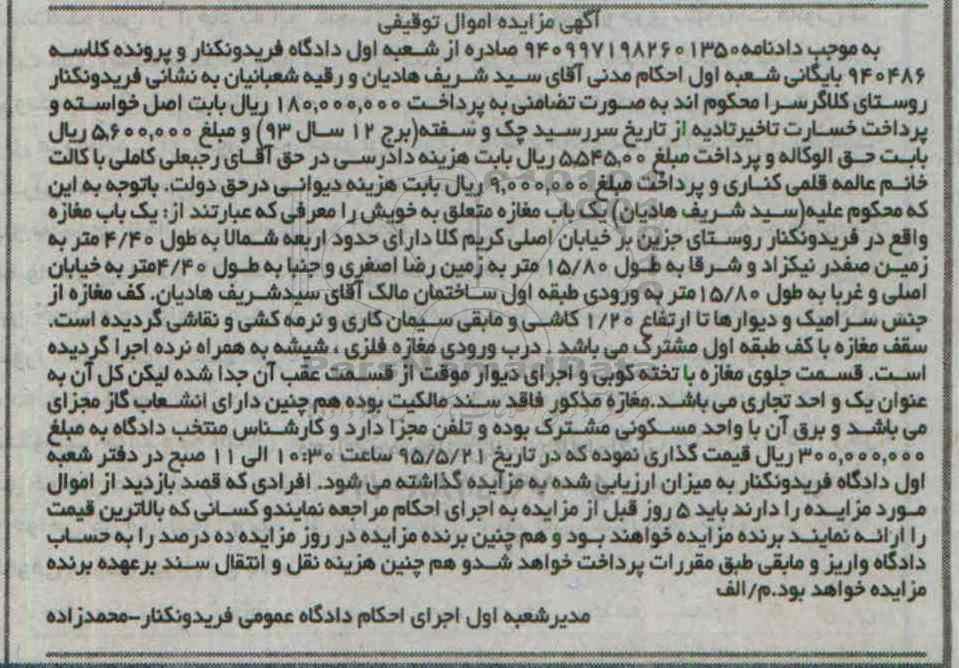 آگهی مزایده اموال توقیفی
به موجب دادنامه۹۴۰۹۹۷۱۹۸۲۶۰۱۳۵۰ صادره از شعبه اول دادگاه فریدونکنار و پرونده کلاسه
۹۴۰۴۸۶ بایگانی شعبه اول احکام مدنی آقای سید شریف هادیان و رقیه شعبانیان به نشانی فریدونکنار
روستای کلاگرسرا محکوم اند به صورت تضامنی به پرداخت ۱۸۰,۰۰۰,۰۰۰ ریال بابت اصل خواسته و
پرداخت خسارت تاخیرتادیه از تاریخ سررسید چک و سفته(برج ۱۲ سال ۹۳) و مبلغ ۵,۶۰۰,۰۰۰ ریال
بابت حق الوکاله و پرداخت مبلغ ۵,۵۴۵,۰۰ ریال بابت هزینه دادرسی در حق آقای رجبعلی کاملی با کالت
خانم عالمه قلمی کناری و پرداخت مبلغ ۹,۰۰۰,۰۰۰ ریال بابت هزینه دیوانی درحق دولت. باتوجه به این
که محکوم علیه(سید شریف هادیان) یک باب مغازه متعلق به خویش را معرفی که عبارتند از: یک باب مغازه
واقع در فریدونکنار روستای جزین بر خیابان اصلی کریم کلا دارای حدود اربعه شمالا به طول ۴/۴۰ متر به
زمین صفدر نیکزاد و شرقا به طول ۱۵/۸۰ متر به زمین رضا اصغری و جنبا به طول ۴/۴۰متر به خیابان
اصلی و غربا به طول ۱۵/۸۰متر به ورودی طبقه اول ساختمان مالک آقای سیدشریف هادیان. کف مغازه از
جنس سرامیک و دیوارها تا ارتفاع ۱/۲۰ کاشی و مابقی سیمان کاری و نرمه کشی و نقاشی گردیده است.
سقف مغازه با کف طبقه اول مشترک می باشد . درب ورودی مغازه فلزی ، شیشه به همراه نرده اجرا گردیده
است. قسمت جلوی مغازه با تخته کوبی و اجرای دیوار موقت از قسمت عقب آن جدا شده لیکن کل آن به
عنوان یک و احد تجاری می باشد.مغازه مذکور فاقد سند مالکیت بوده هم چنین دارای انشعاب گاز مجزای
می باشد و برق آن با واحد مسکونی مشترک بوده و تلفن مجزا دارد و کارشناس منتخب دادگاه به مبلغ
۳۰۰,۰۰۰,۰۰۰ ریال قیمت گذاری نموده که در تاریخ ۹۵/۵/۲۱ ساعت ۱۰:۳۰ الی ۱۱ صبح در دفتر شعبه
اول دادگاه فریدونکنار به میزان ارزیابی شده به مزایده گذاشته می شود. افرادی که قصد بازدید از اموال
مورد مزایده را دارند باید ۵ روز قبل از مزایده به اجرای احکام مراجعه نمایندو کسانی که بالاترین قیمت
را ارائه نمایند برنده مزایده خواهند بود و هم چنین برنده مزایده در روز مزایده ده درصد را به حساب
دادگاه واریز و مابقی طبق مقررات پرداخت خواهد شدو هم چنین هزینه نقل و انتقال سند برعهده برنده
مزایده خواهد بود.م/الف
مدیرشعبه اول اجرای احکام دادگاه عمومی فریدونکنار-محمدزاده